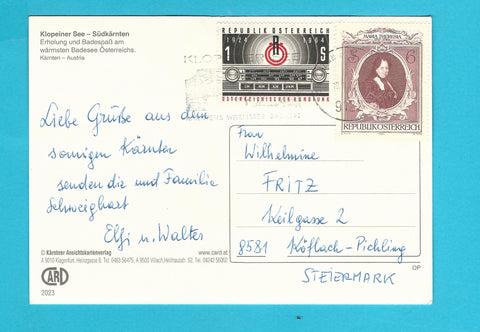 Klopeiner See – Südkärnten
Erholung und Badespaß am
wärmsten Badesee Österreichs.
Kärnten – Austria
REPUBLIK ÖSTERREICH
1924 1964
1 S
ÖSTERREICHISCHER RUNDFUNK
MARIA THERESIA
S 6
REPUBLIK ÖSTERREICH
KLOPEINER SEE
9
Liebe Grüße aus dem
sonnigen Kärnten
senden dir und Familie
Schweighart
Elfi u. Walter
Frau
Wilhelmine
FRITZ
Keilgasse 2
8581 Köflach-Pichling
STEIERMARK
© Kärntner Ansichtskartenverlag www.card.at
A 9010 Klagenfurt, Heinzgasse 8, Tel. 0463 56475, A 9500 Villach, Tel. 04242 56002
CARD
2023
OP